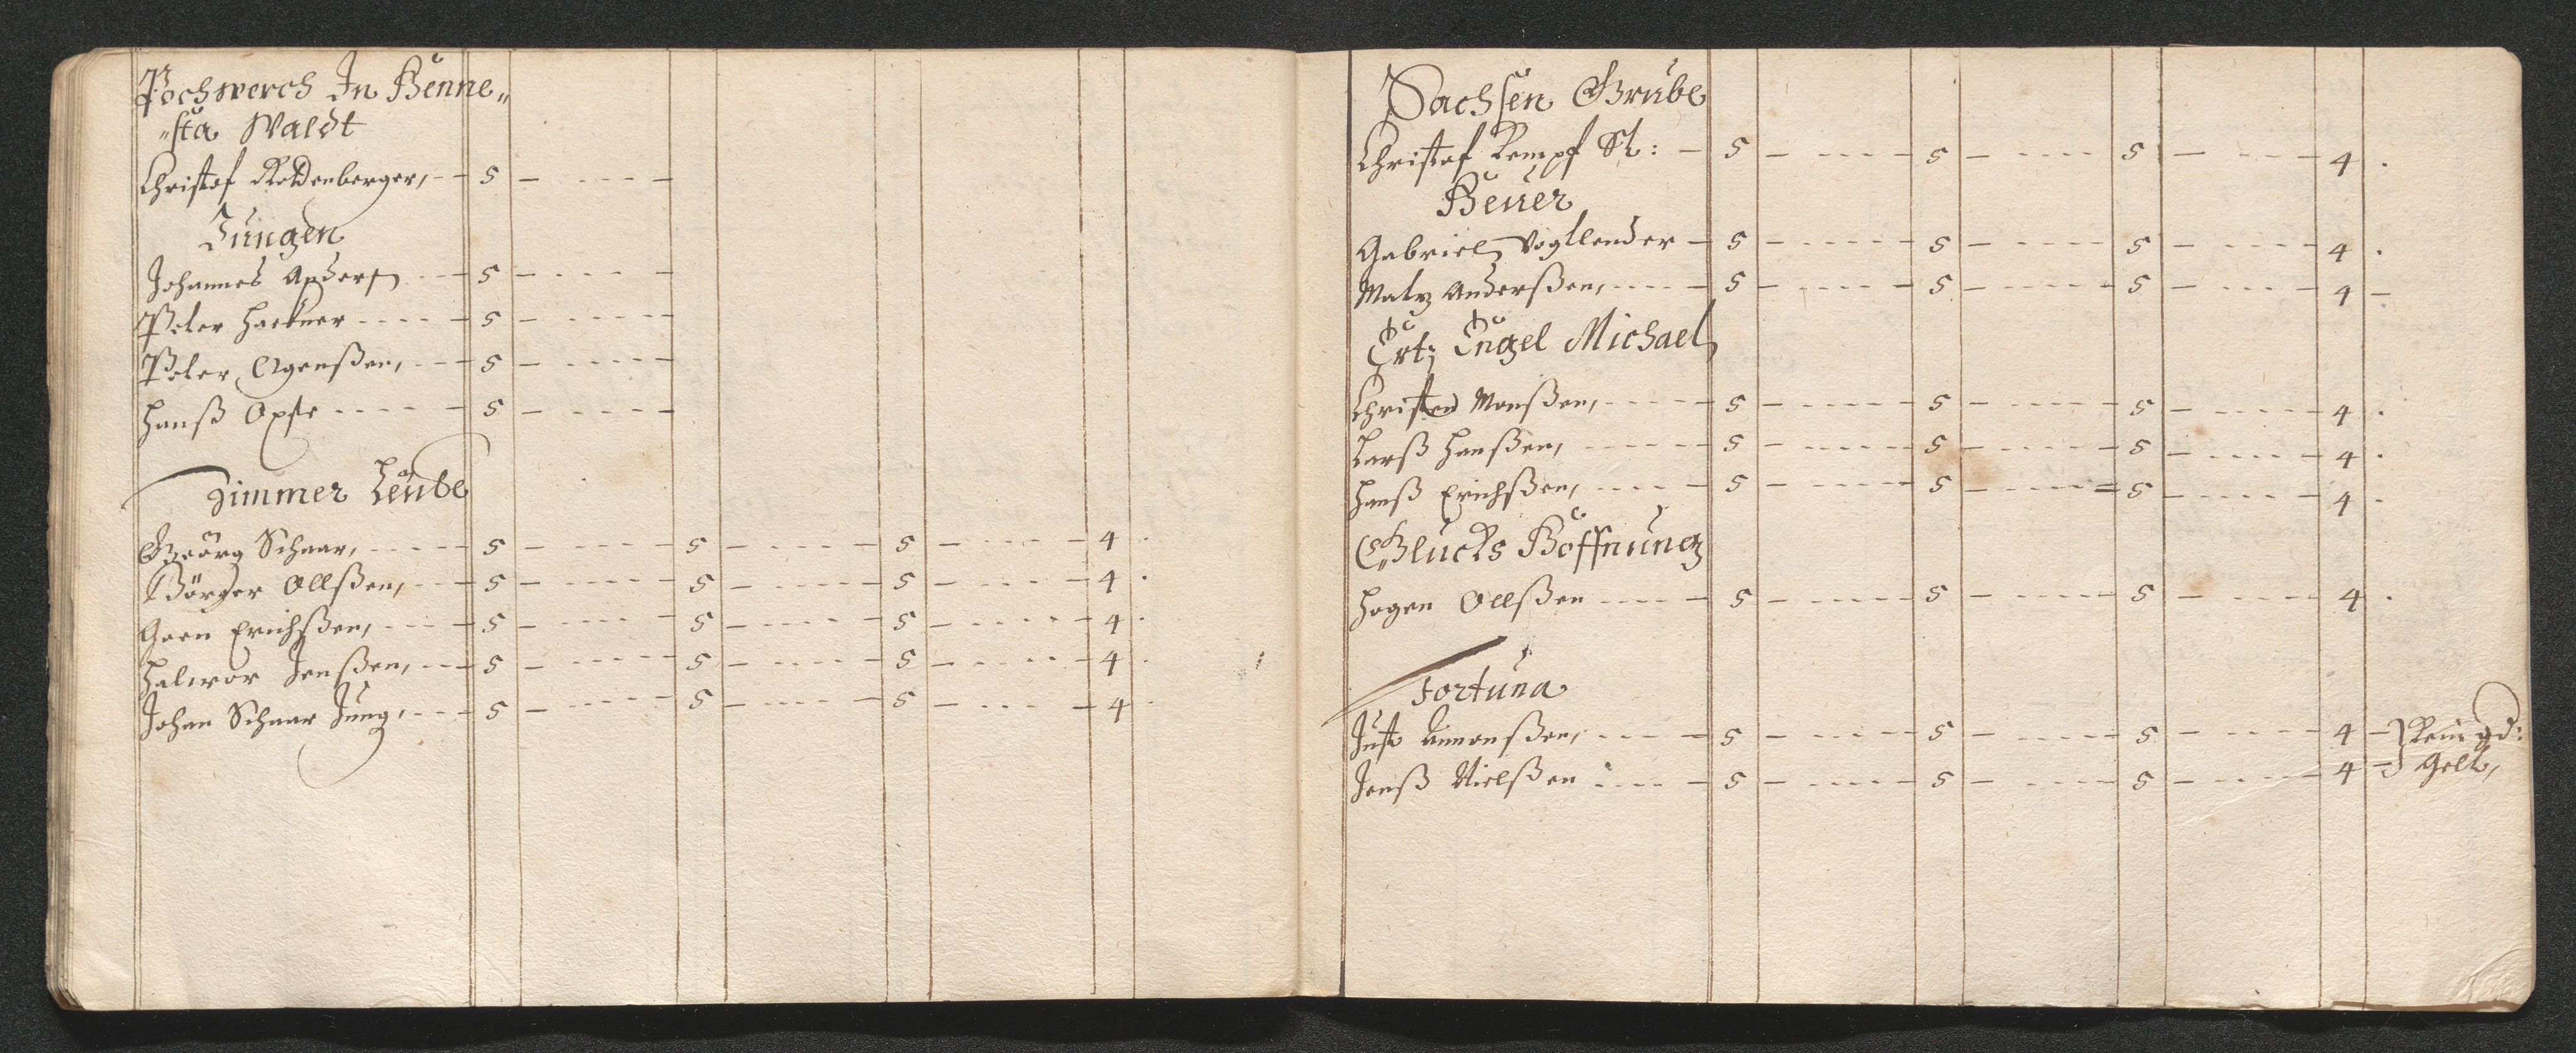 Pochwerch In Benne„
„sta Waldt
Christof Rottenberger, - 5 - - - - -
Jungen
Johannes Anders - - - 5 - - - - -
Peter Hackner - - - - - 5 - - - - -
Peter Agenßen, - - - 5 - - - - -
Hanß Opste - - - - - 5 - - - - -
Zimmer Leübe
Georg Schaar, - - - - - 5 - - - - - 5 - - - - - 5 - - - - - 4 .
Börger Ollßen, - - - 5 - - - - - 5 - - - - - 5 - - - - - 4 .
Goen Erichßen, - - - 5 - - - - - 5 - - - - - 5 - - - - - 4 .
Halvor Jenßen, - - - 5 - - - - - 5 - - - - - 5 - - - - - 4 .
Johan Schaar Jung, - - - 5 - - - - - 5 - - - - - 5 - - - - - 4 .
Sachsen Grube
Christof Kempf St: - 5 - - - - - 5 - - - - - 5 - - - - - 4 .
Heuer
Gabriel Vogtlender - 5 - - - - - 5 - - - - - 5 - - - - - 4 .
Matz Anderßen, - - - - 5 - - - - - 5 - - - - - 5 - - - - - 4 -
Ertz Engel Michael
Christen Monßen, - - - - 5 - - - - - 5 - - - - - 5 - - - - - 4 .
Larß Hanßen, - - - - - 5 - - - - - 5 - - - - - 5 - - - - - 4 .
Hanß Erichßen, - - - - 5 - - - - - 5 - - - - - 5 - - - - - 4 .
Glucks Hoffnung
Hagen Ollßen - - - - 5 - - - - - 5 - - - - - 5 - - - - - 4 .
Fortuna
Just Amonßen, - - - - 5 - - - - - 5 - - - - - 5 - - - - - 4 -
Jenß Nielßen - - - - - 5 - - - - - 5 - - - - - 5 - - - - - 4 - Gelt,